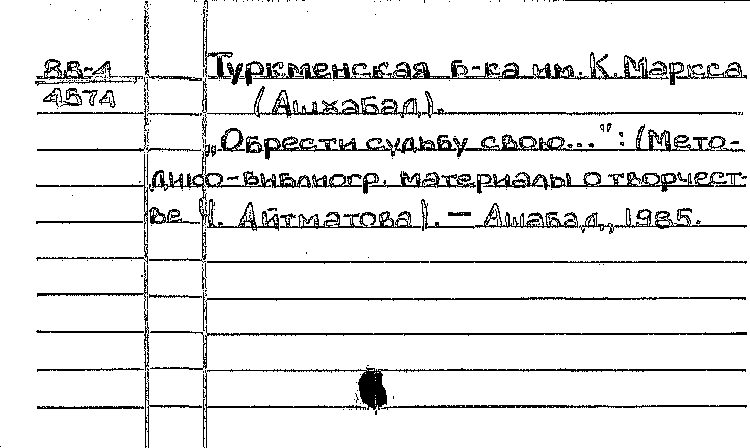 88-4 Туркменская б-ка им. К. Маркса
4574 (Ашхабад).
„Обрести судьбу свою...": (Мето-
дико-библиогр. материалы о творчест-
ве Ч. Айтматова). — Ашабад,, 1985.